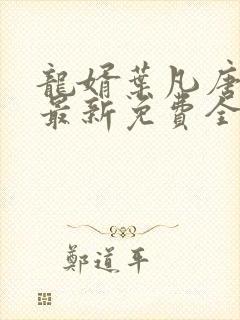 龍婿葉凡唐
最新免費全
鄭道平